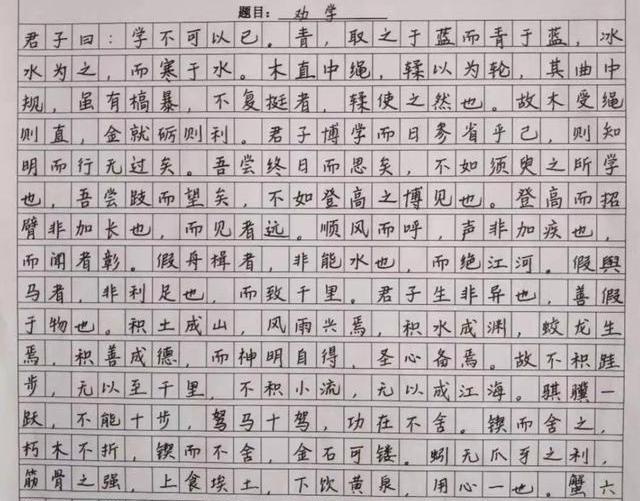 题目：劝学
君子曰：学不可以已。青，取之于蓝而青于蓝，冰
水为之，而寒于水。木直中绳，輮以为轮，其曲中
规，虽有槁暴，不复挺者，輮使之然也。故木受绳
则直，金就砺则利。君子博学而日参省乎己，则知
明而行无过矣。吾尝终日而思矣，不如须臾之所学
也，吾尝跂而望矣，不如登高之博见也。登高而招
臂非加长也，而见者远。顺风而呼，声非加疾也，
而闻者彰。假舟楫者，非能水也，而绝江河。假舆
马者，非利足也，而致千里。君子生非异也，善假
于物也。积土成山，风雨兴焉，积水成渊，蛟龙生
焉，积善成德，而神明自得，圣心备焉。故不积跬
步，无以至千里，不积小流，无以成江海。骐骥一
跃，不能十步，驽马十驾，功在不舍。锲而舍之，
朽木不折，锲而不舍，金石可镂。蚓无爪牙之利，
筋骨之强，上食埃土，下饮黄泉，用心一也。蟹六